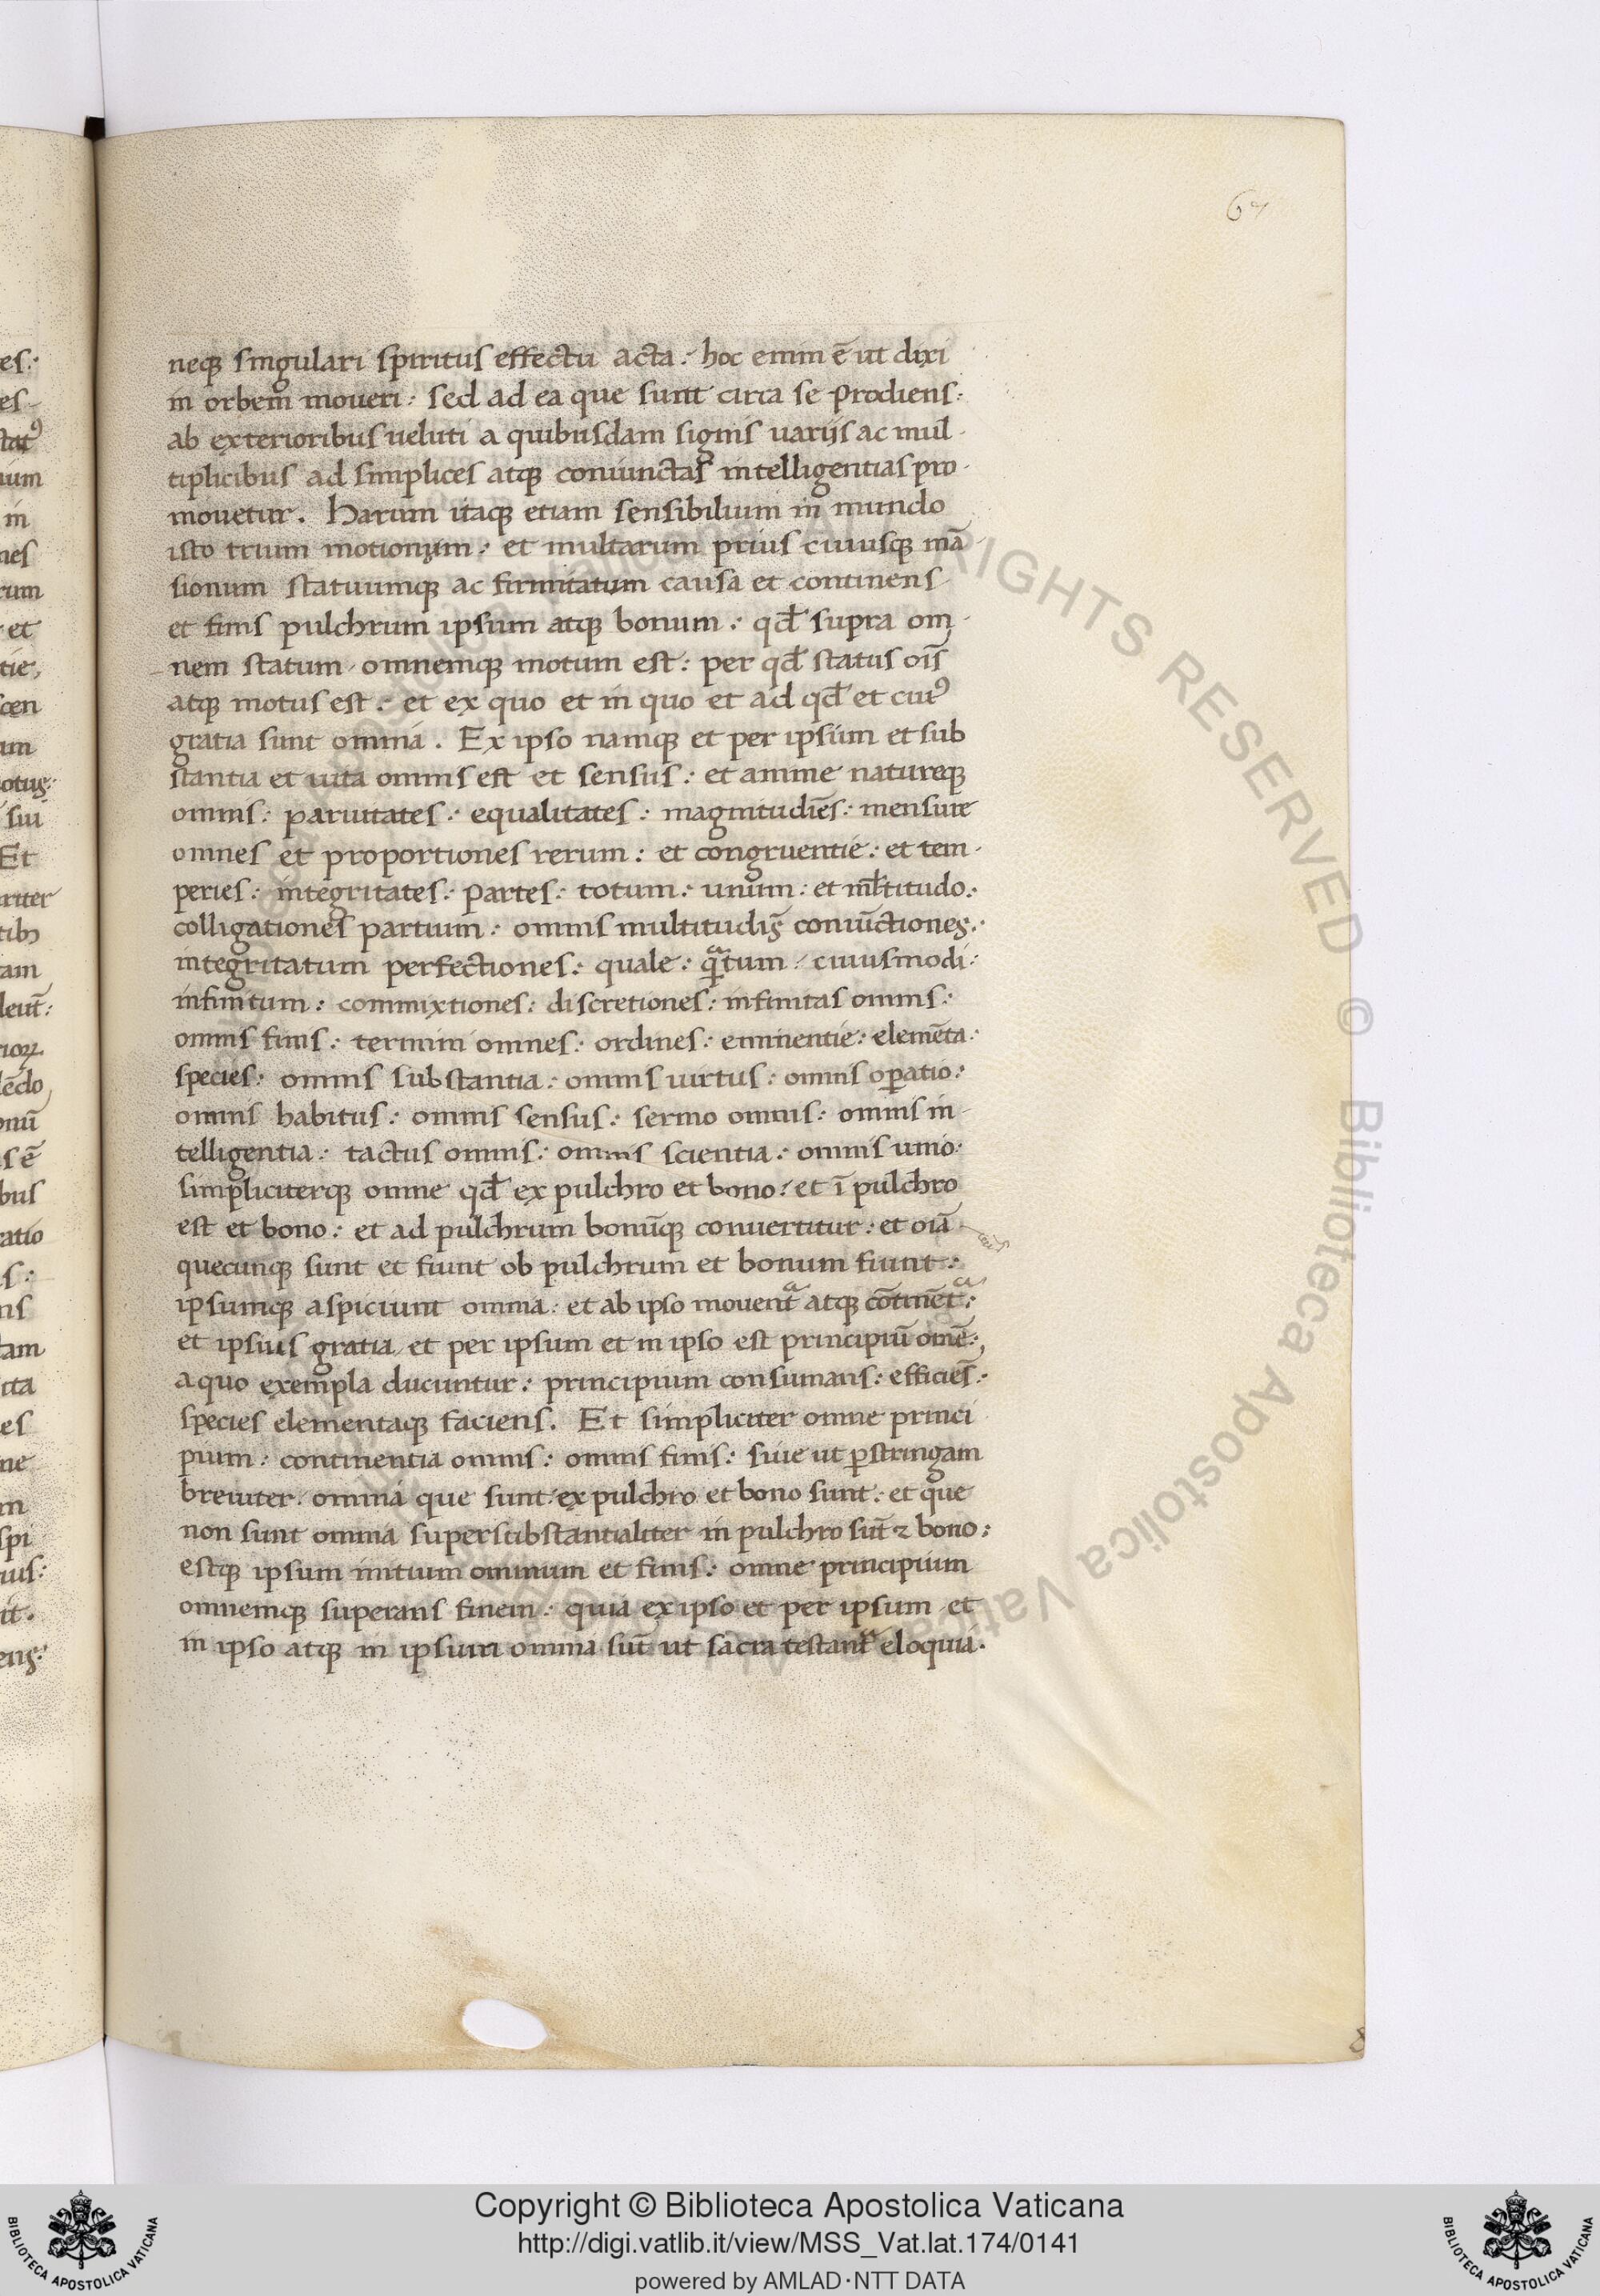 67
neq̃ singulari spiritus effectu acta : hoc enim ē ut dixi
in orbem moueri : sed ad ea que sunt circa se prodiens :
ab exterioribus ueluti a quibusdam signis uarijs ac mul-
tiplicibus ad simplices atq̃ coniunctas intelligentias pro-
mouetur . Harum itaq̃ etiam sensibilium in mundo
isto trium motionum : et multarum prius cuiusq̃ mā-
sionum statuumq̃ ac firmitatum causa et continens
et finis pulchrum ipsum atq̃ bonum : qd̄ supra om-
nem statum omnemq̃ motum est : per qd̄ status oīs
atq̃ motus est : et ex quo et in quo et ad qd̄ et cuiꝰ
gratia sunt omnia . Ex ipso namq̃ et per ipsum et sub
stantia et uita omnis est et sensus : et anime natureq̃
omnis : paruitates : equalitates : magnitudiēs : mensure
omnes et proportiones rerum : et congruentie : et tem-
peries : integritates : partes : totum : unum : et ml̄titudo :
colligationes partium : omnis multitudīs coniūctiones :
integritatum perfectiones : quale : qͣtum : cuiusmodi :
infinitum : commixtiones : discretiones : infinitas omnis :
omnis finis : termini omnes : ordines : eminentie : elemēta :
species : omnis substantia : omnis uirtus : omnis oꝑatio :
omnis habitus : omnis sensus : sermo omnis : omnis in-
telligentia : tactus omnis : omnis scientia : omnis unio :
simpliciterq̃ omne qd̄ ex pulchro et bono : et ī pulchro
est et bono : et ad pulchrum bonūq̃ conuertitur : et oīa
quecunq̃ sunt et fiunt ob pulchrum et bonum fiunt :
ipsumq̃ aspiciunt omnia : et ab ipso mouentͣ atq̃ cōtinētͣ :
et ipsius gratia et per ipsum et in ipso est principiū omē :
a quo exempla ducuntur : principium consumans : efficiēs :
species elementaq̃ faciens . Et simpliciter omne princi
pium : continentia omnis : omnis finis : siue ut ꝑstringam
breuiter . omnia que sunt ex pulchro et bono sunt : et que
non sunt omnia supersubstantialiter in pulchro sūt ⁊ bono :
estq̃ ipsum initium omnium et finis : omne principium
omnemq̃ superans finem : quia ex ipso et per ipsum et
in ipso atq̃ in ipsum omnia sūt ut sacra testantͣ eloquia .
Copyright © Biblioteca Apostolica Vaticana
http://digi.vatlib.it/view/MSS_Vat.lat.174/0141
powered by AMLAD·NTT DATA